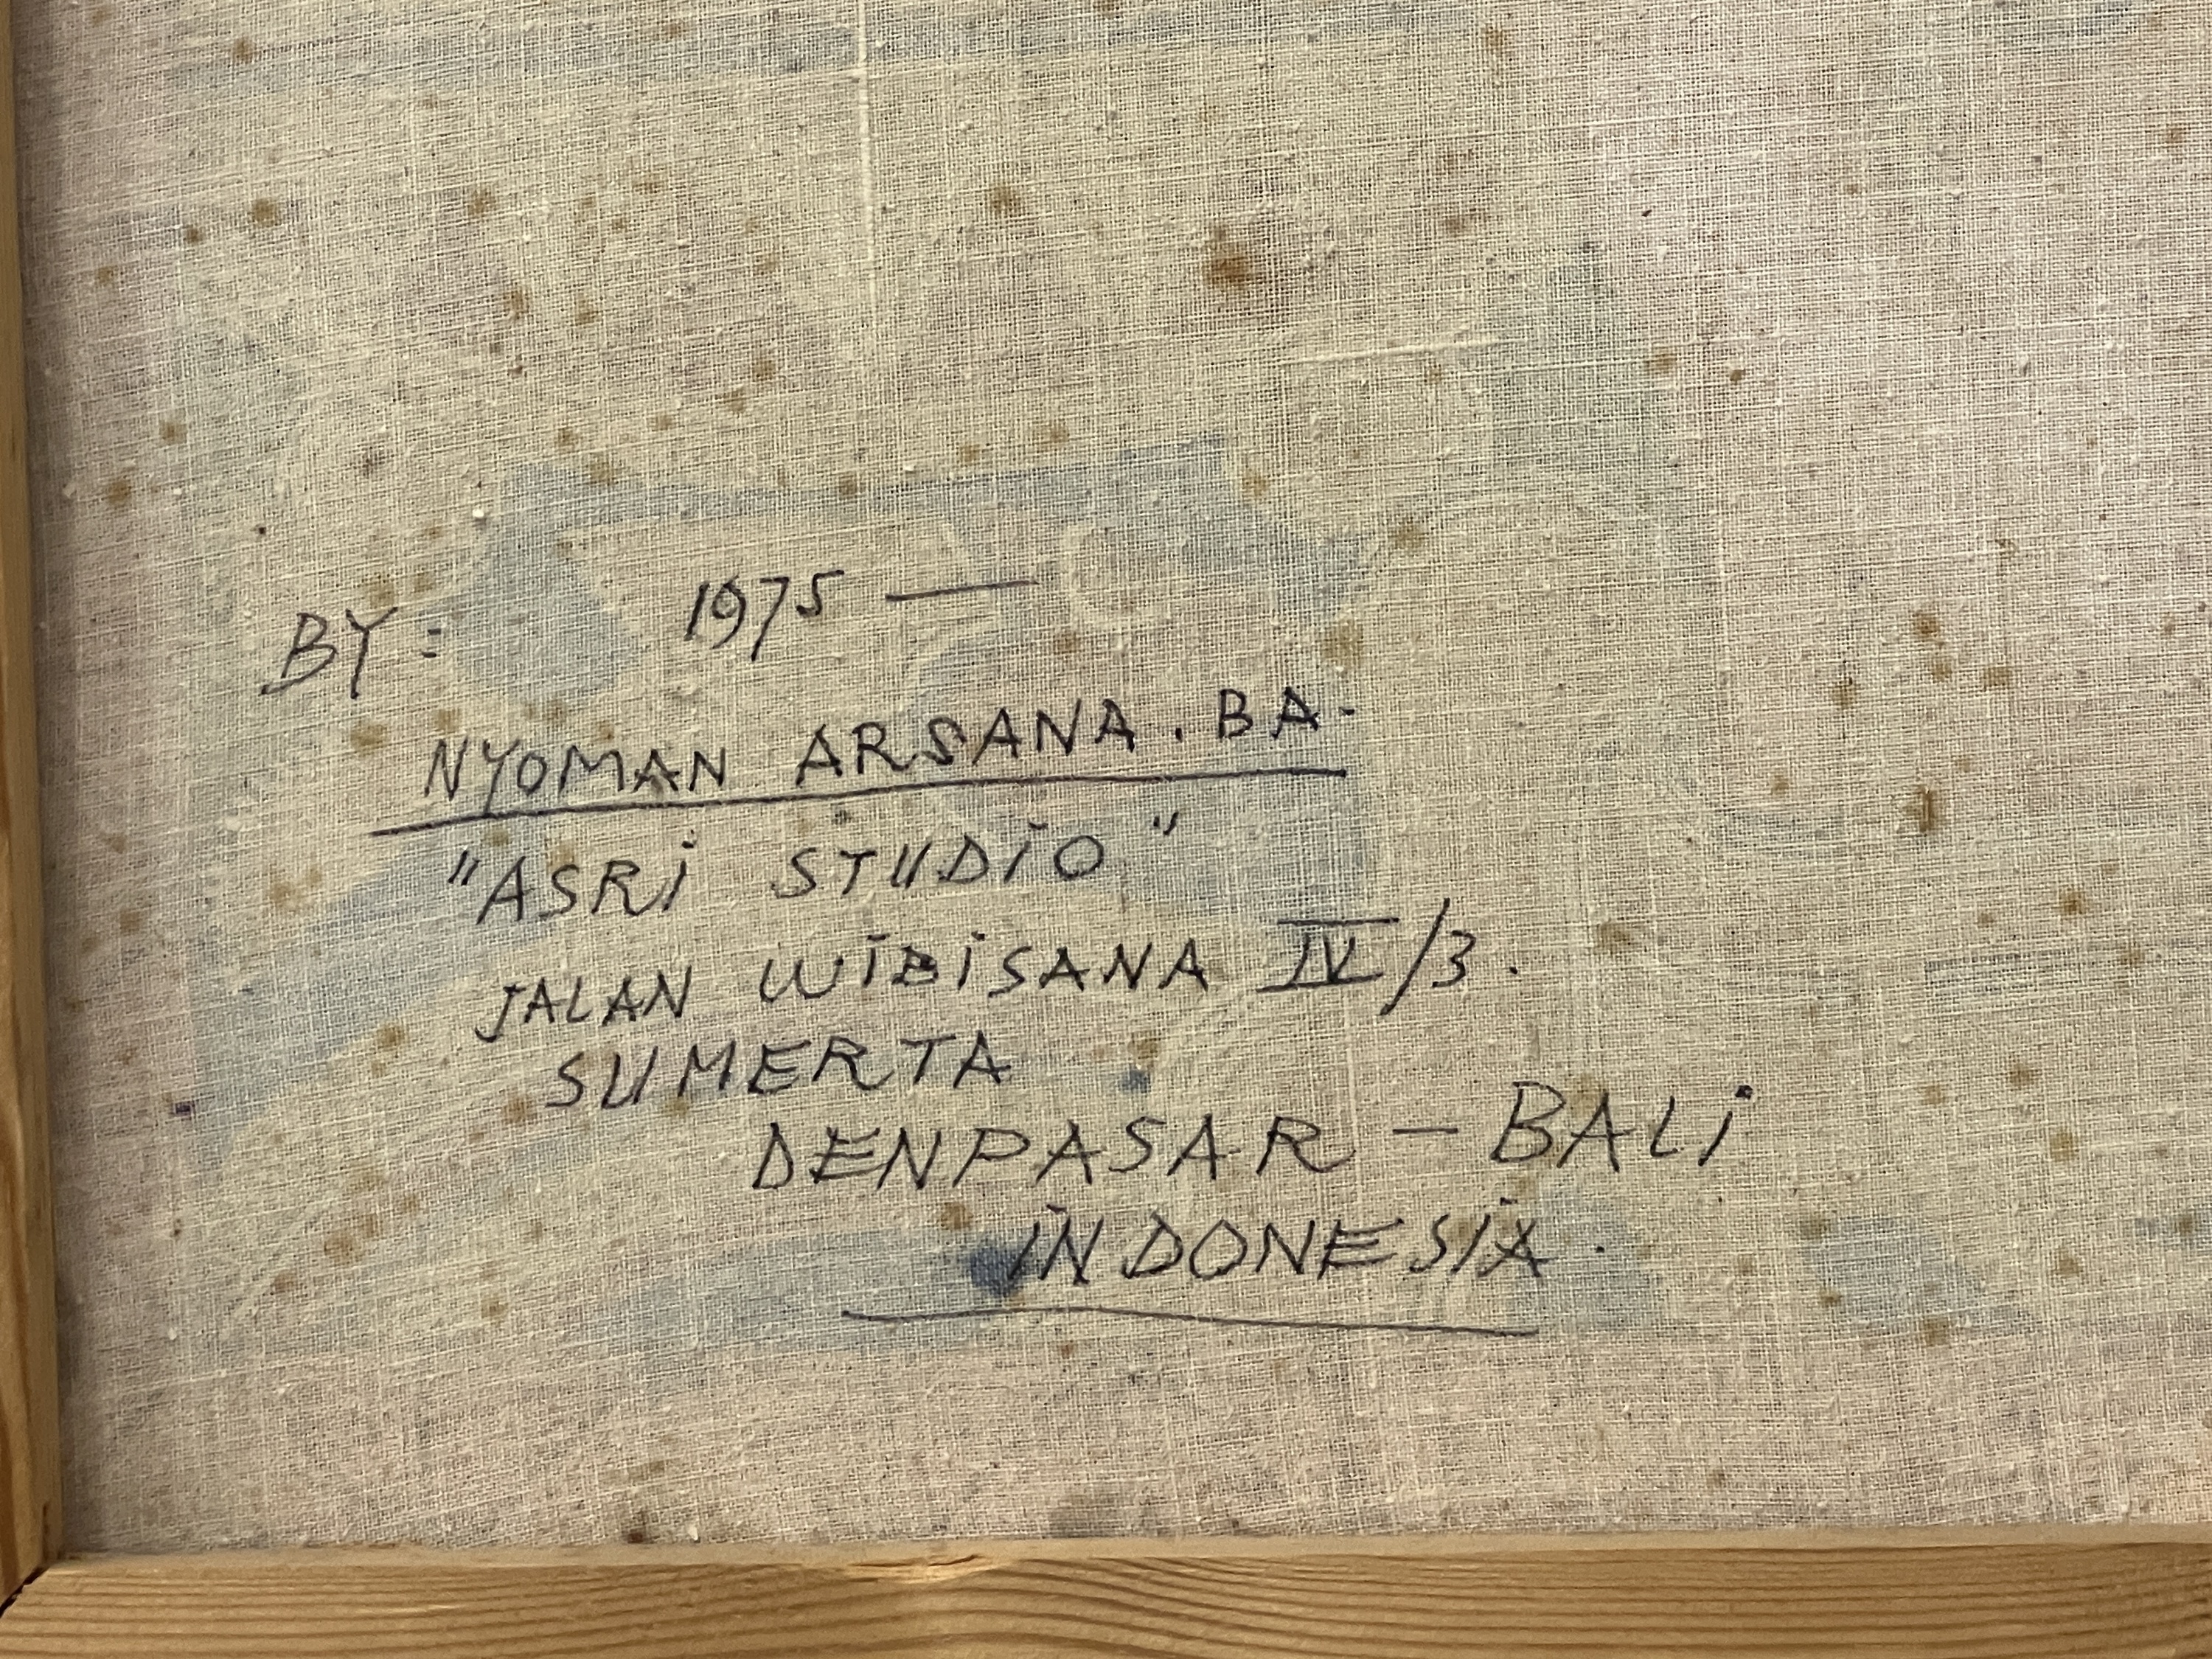 BY: 1975 —
NYOMAN ARSANA. BA.
"ASRi STUDiO"
JALAN WiBiSANA IV/3.
SUMERTA
DENPASAR – BALi
iNDONESiA.